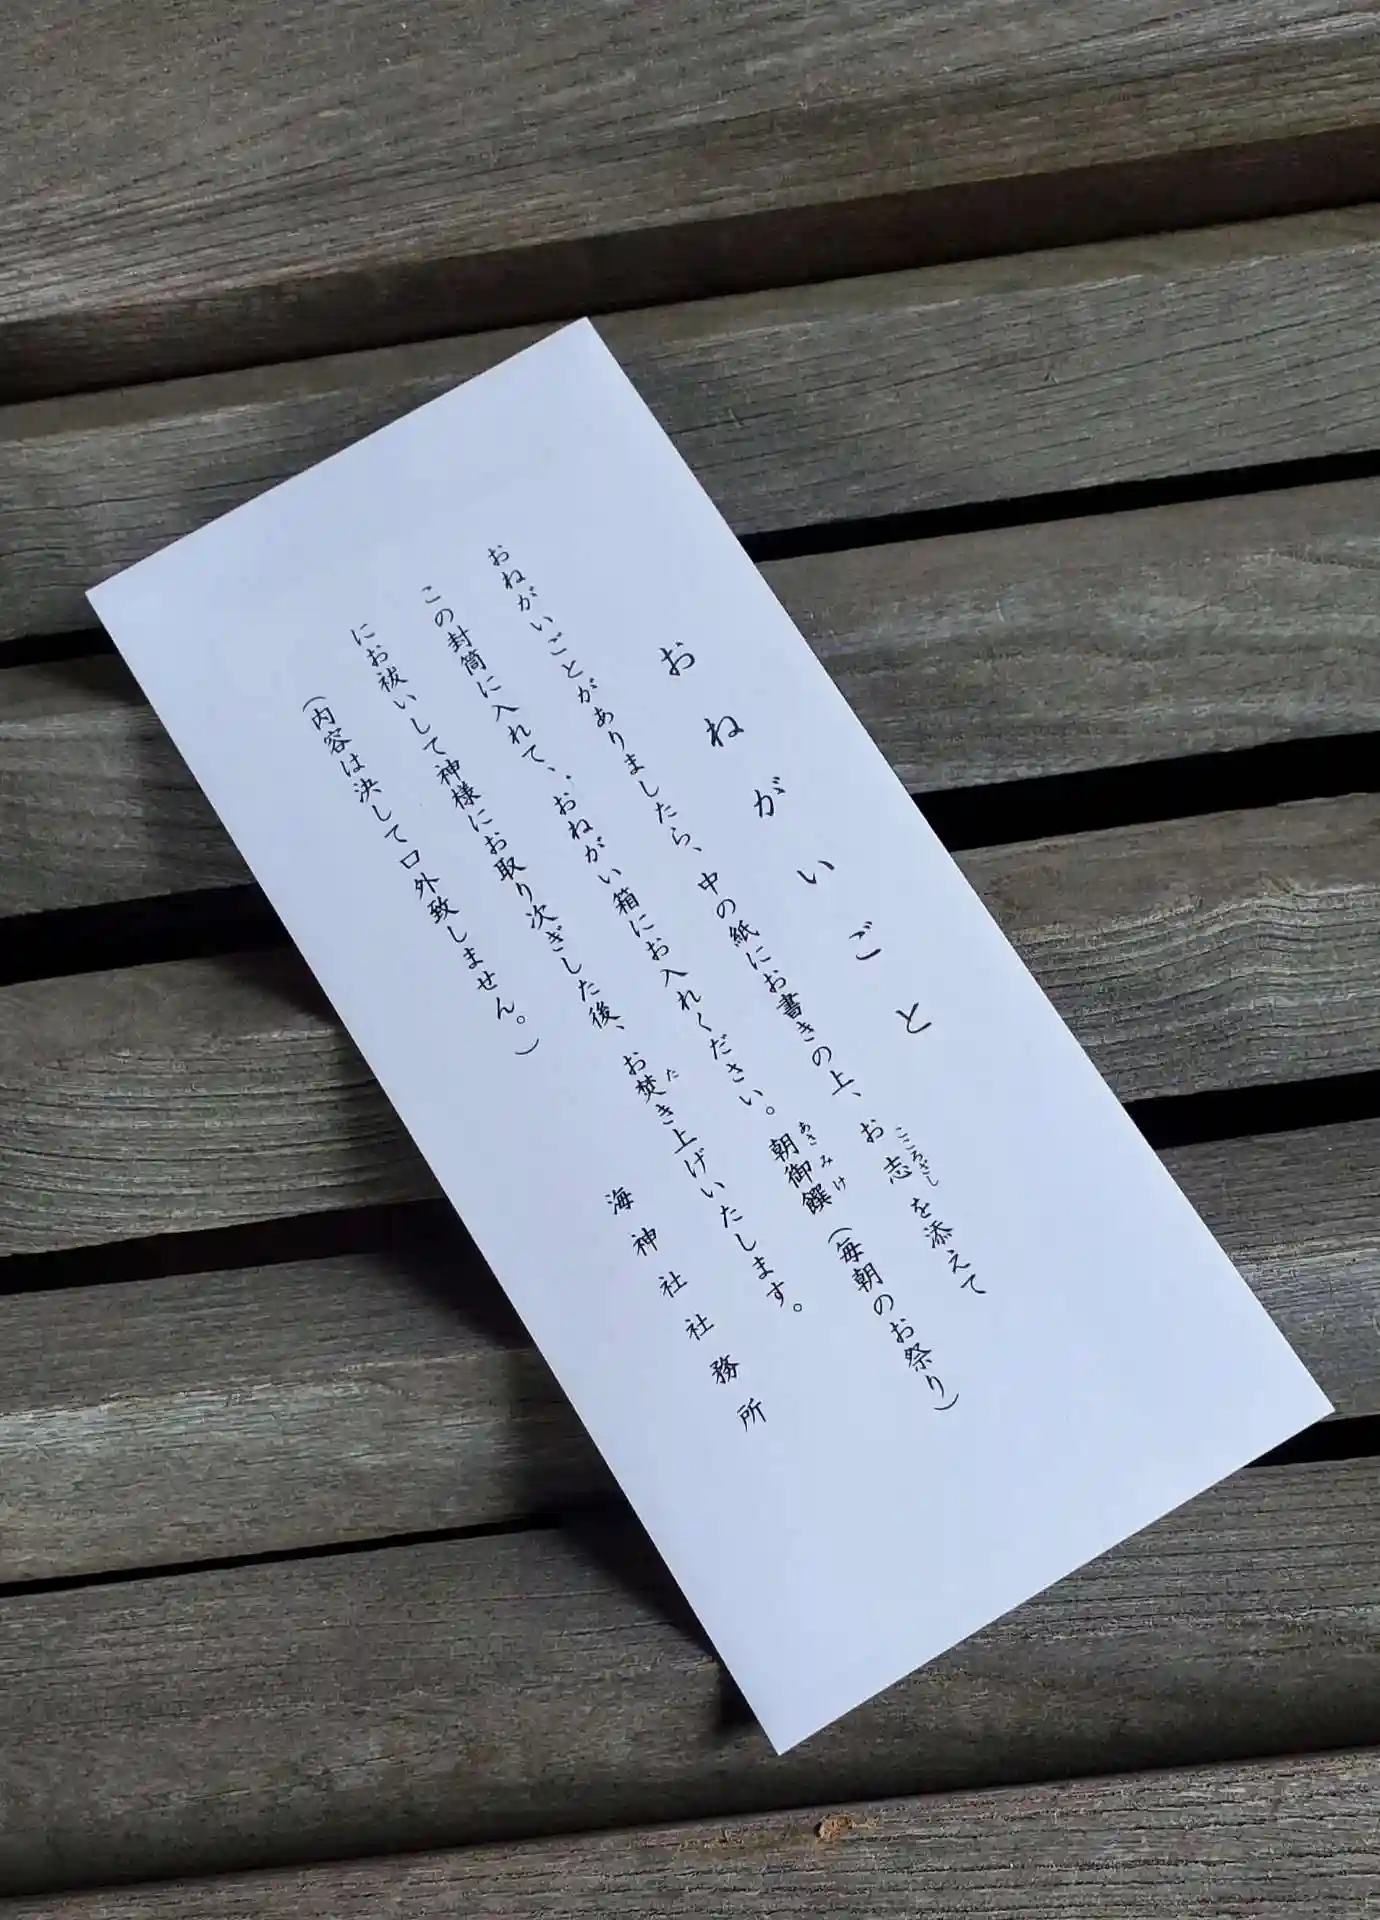 おねがいごと
おねがいごとがありましたら、中の紙にお書きの上、お志を添えて
こころざし
この封筒に入れて、おねがい箱にお入れください。朝御饌(毎朝のお祭り)
あさみけ
にお祓いして神様にお取り次ぎした後、お焚き上げいたします。
た
(内容は決して口外致しません。)
海神社社務所